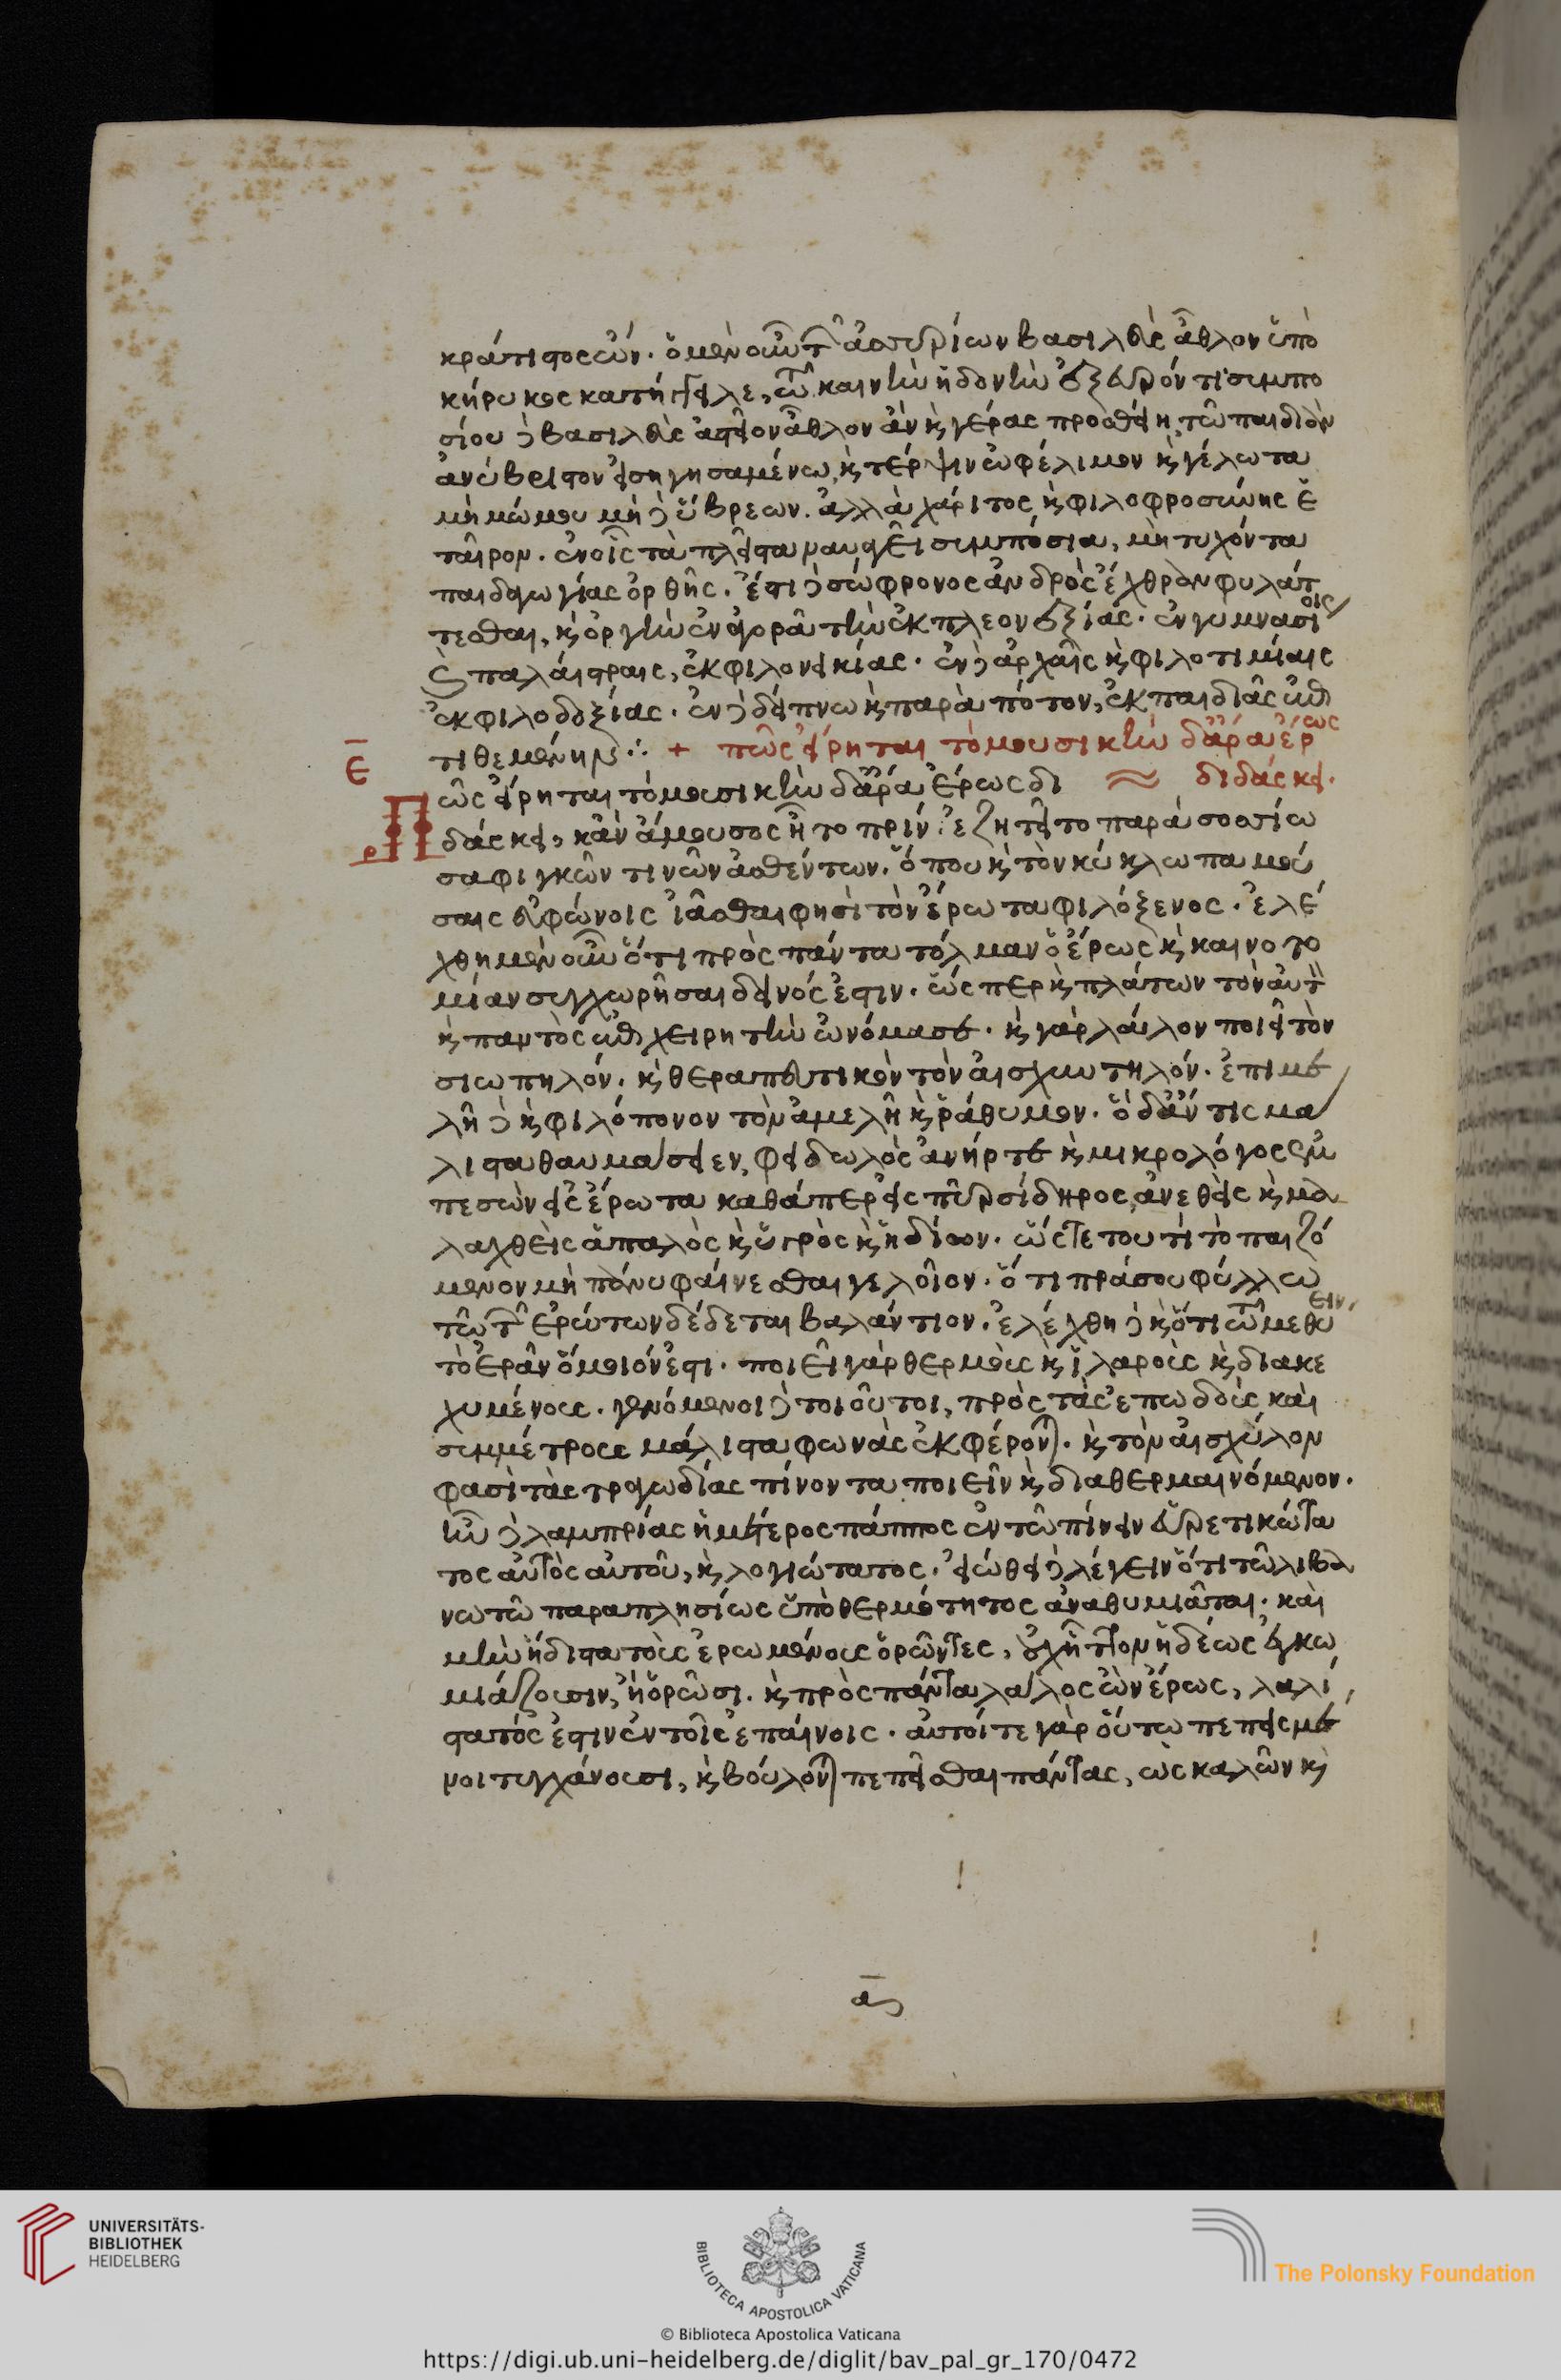 κράτιστος ὤν. ὁ μὲν οὖν τῶν ἀσσυρίων βασιλεὺς ἆθλον ὑπὸ
κήρυκος κατήγγειλε, τῶ καινὴν ἡδονὴν ἐξευρόντι· συμπο
σίου δὲ βασιλεὺς ἀστεῖον ἆθλον ἂν καὶ γέρας προσθείη, τῶ παιδιὰν
ἀνύβριστον εἰσηγησαμένω, καὶ τέρψιν ὠφέλιμον καὶ γέλωτα
μὴ μώμου μὴ δὲ ὕβρεων. ἀλλὰ χάριτος καὶ φιλοφροσύνης ἑ
ταῖρον. ἐν οἷς τὰ πλεῖστα ναυαγεῖ συμπόσια, μὴ τυχόντα
παιδαγωγίας ὀρθῆς. ἔστι δὲ σώφρονος ἀνδρὸς ἔχθραν φυλάτ
τεσθαι, καὶ ὀργὴν ἐν ἀγορᾶ τὴν ἐκ πλεονεξίας. ἐν γυμνασίοις
καὶ παλαίστραις, ἐκ φιλονεικίας. ἐν δὲ ἀρχαῖς καὶ φιλοτιμίαις
ἐκ φιλοδοξίας. ἐν δὲ δείπνω καὶ παρὰ πότον, ἐκ παιδιᾶς ἐπι
τιθεμένην: + πῶς εἴρηται τὸ μουσικὴν δ' ἄρα ἔρως
ε̄ διδάσκει.
Πῶς εἴρηται τὸ μουσικὴν δ' ἄρα ἔρως δι
δάσκει, κἂν ἄμουσος ἦ τὸ πρίν. ἐζητεῖτο παρὰ σοσσίω
σαφικῶν τινῶν ἀσθέντων. ὅπου καὶ τὸν κύκλωπα μού
σαις εὐφώνοις ἰᾶσθαι φησὶ τὸν ἔρωτα φιλόξενος. ἐλέ
χθη μὲν οὖν ὅτι πρὸς πάντα τόλμαν ὁ ἔρως καὶ καινοτο
μίαν συγχωρῆσαι δεινός ἐστιν. ὥσπερ καὶ πλάτων τὸν αὐτὸν
καὶ παντὸς ἐπιχειρητὴν ὠνόμασε. καὶ γὰρ λάλον ποιεῖ τὸν
σιωπηλόν. καὶ θεραπευτικὸν τὸν αἰσχυντηλόν. ἐπιμε
λῆ δὲ καὶ φιλόπονον τὸν ἀμελῆ καὶ ῥάθυμον. ὃ δ' ἄν τις μά
λιστα θαυμάσειεν, φειδωλὸς ἀνήρ τε καὶ μικρολόγος ἐμ
πεσὼν εἰς ἔρωτα καθάπερ εἰς πῦρ σίδηρος, ἀνεθεὶς καὶ μα
λαχθεὶς ἁπαλὸς καὶ ὑγρὸς καὶ ἡδίων. ὥστε τουτὶ τὸ παιζό
μενον μὴ πάνυ φαίνεσθαι γελοῖον. ὅτι πράσου φύλλω
τὸ τῶν ἐρώτων δέδεται βαλάντιον. ἐλέχθη δὲ καὶ ὅτι τῶ μεθύειν
τὸ ἐρᾶν ὅμοιόν ἐστι. ποιεῖ γὰρ θερμοὺς καὶ ἱλαροὺς καὶ διακε
χυμένους. γενόμενοι δὲ τοιοῦτοι, πρὸς τὰς ἐπωδοὺς καὶ
συμμέτρους μάλιστα φωνὰς ἐκφέρονται. καὶ τὸν αἰσχύλον
φασὶ τὰς τραγωδίας πίνοντα ποιεῖν καὶ διαθερμαινόμενον.
ἦν δὲ λαμπρίας ἡμέτερος πάππος ἐν τῶ πίνειν εὑρετικώτα
τος αὐτὸς αὑτοῦ, καὶ λογιώτατος. εἰώθει δὲ λέγειν ὅτι τῶ λιβα
νωτῶ παραπλησίως ὑπὸ θερμότητος ἀναθυμιᾶται. καὶ
μὴν ἥδιστα τοὺς ἐρωμένους ὁρῶντες, οὐχ ἧττον ἡδέως ἐγκω
μιάζουσιν, ἢ ὁρῶσι. καὶ πρὸς πάντα λάλος ὢν ἔρως, λαλί
στατός ἐστιν ἐν τοῖς ἐπαίνοις. αὐτοί τε γὰρ οὕτω πεπεισμέ
νοι τυγχάνουσι, καὶ βούλονται πεπεῖσθαι πάντας, ὡς καλῶν καὶ
UNIVERSITÄTS-
BIBLIOTHEK
HEIDELBERG
BIBLIOTECA APOSTOLICA VATICANA
The Polonsky Foundation
© Biblioteca Apostolica Vaticana
https://digi.ub.uni-heidelberg.de/diglit/bav_pal_gr_170/0472